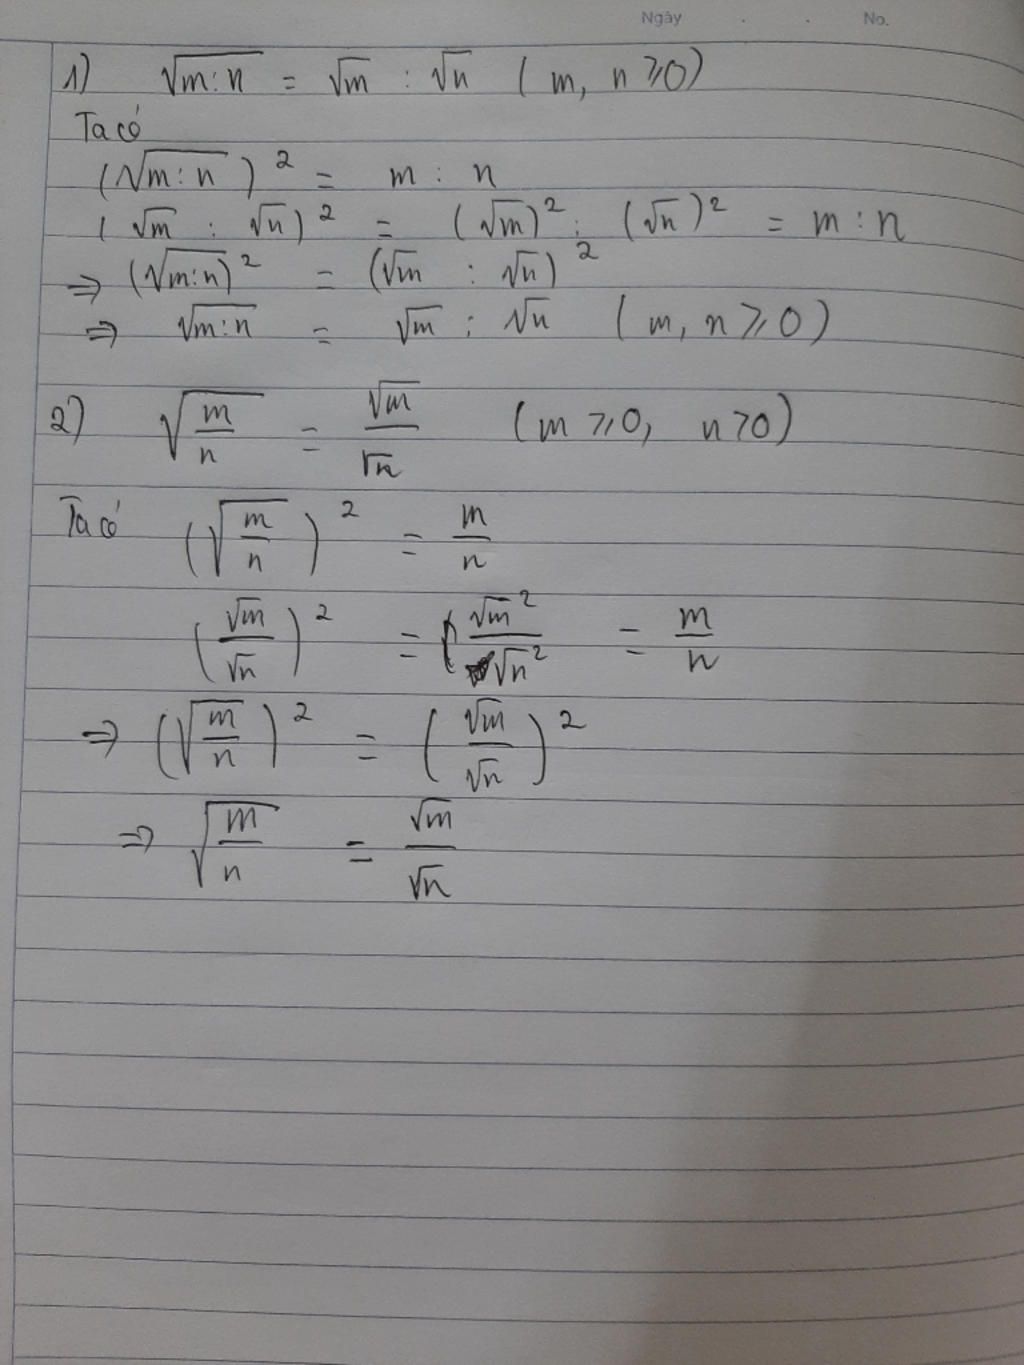 Ngày . . No.
1) √(m:n) = √m : √n ( m, n ⩾ 0)
Ta có
(√(m:n))² = m : n
(√m : √n)² = (√m)² : (√n)² = m : n
⇒ (√(m:n))² = (√m : √n)²
⇒ √(m:n) = √m : √n ( m, n ⩾ 0)
2) √(m/n) = √m/√n (m ⩾ 0, n > 0)
Ta có (√(m/n))² = m/n
(√m/√n)² = (√m²/√n² = m/n
⇒ (√(m/n))² = (√m/√n)²
⇒ √(m/n) = √m/√n